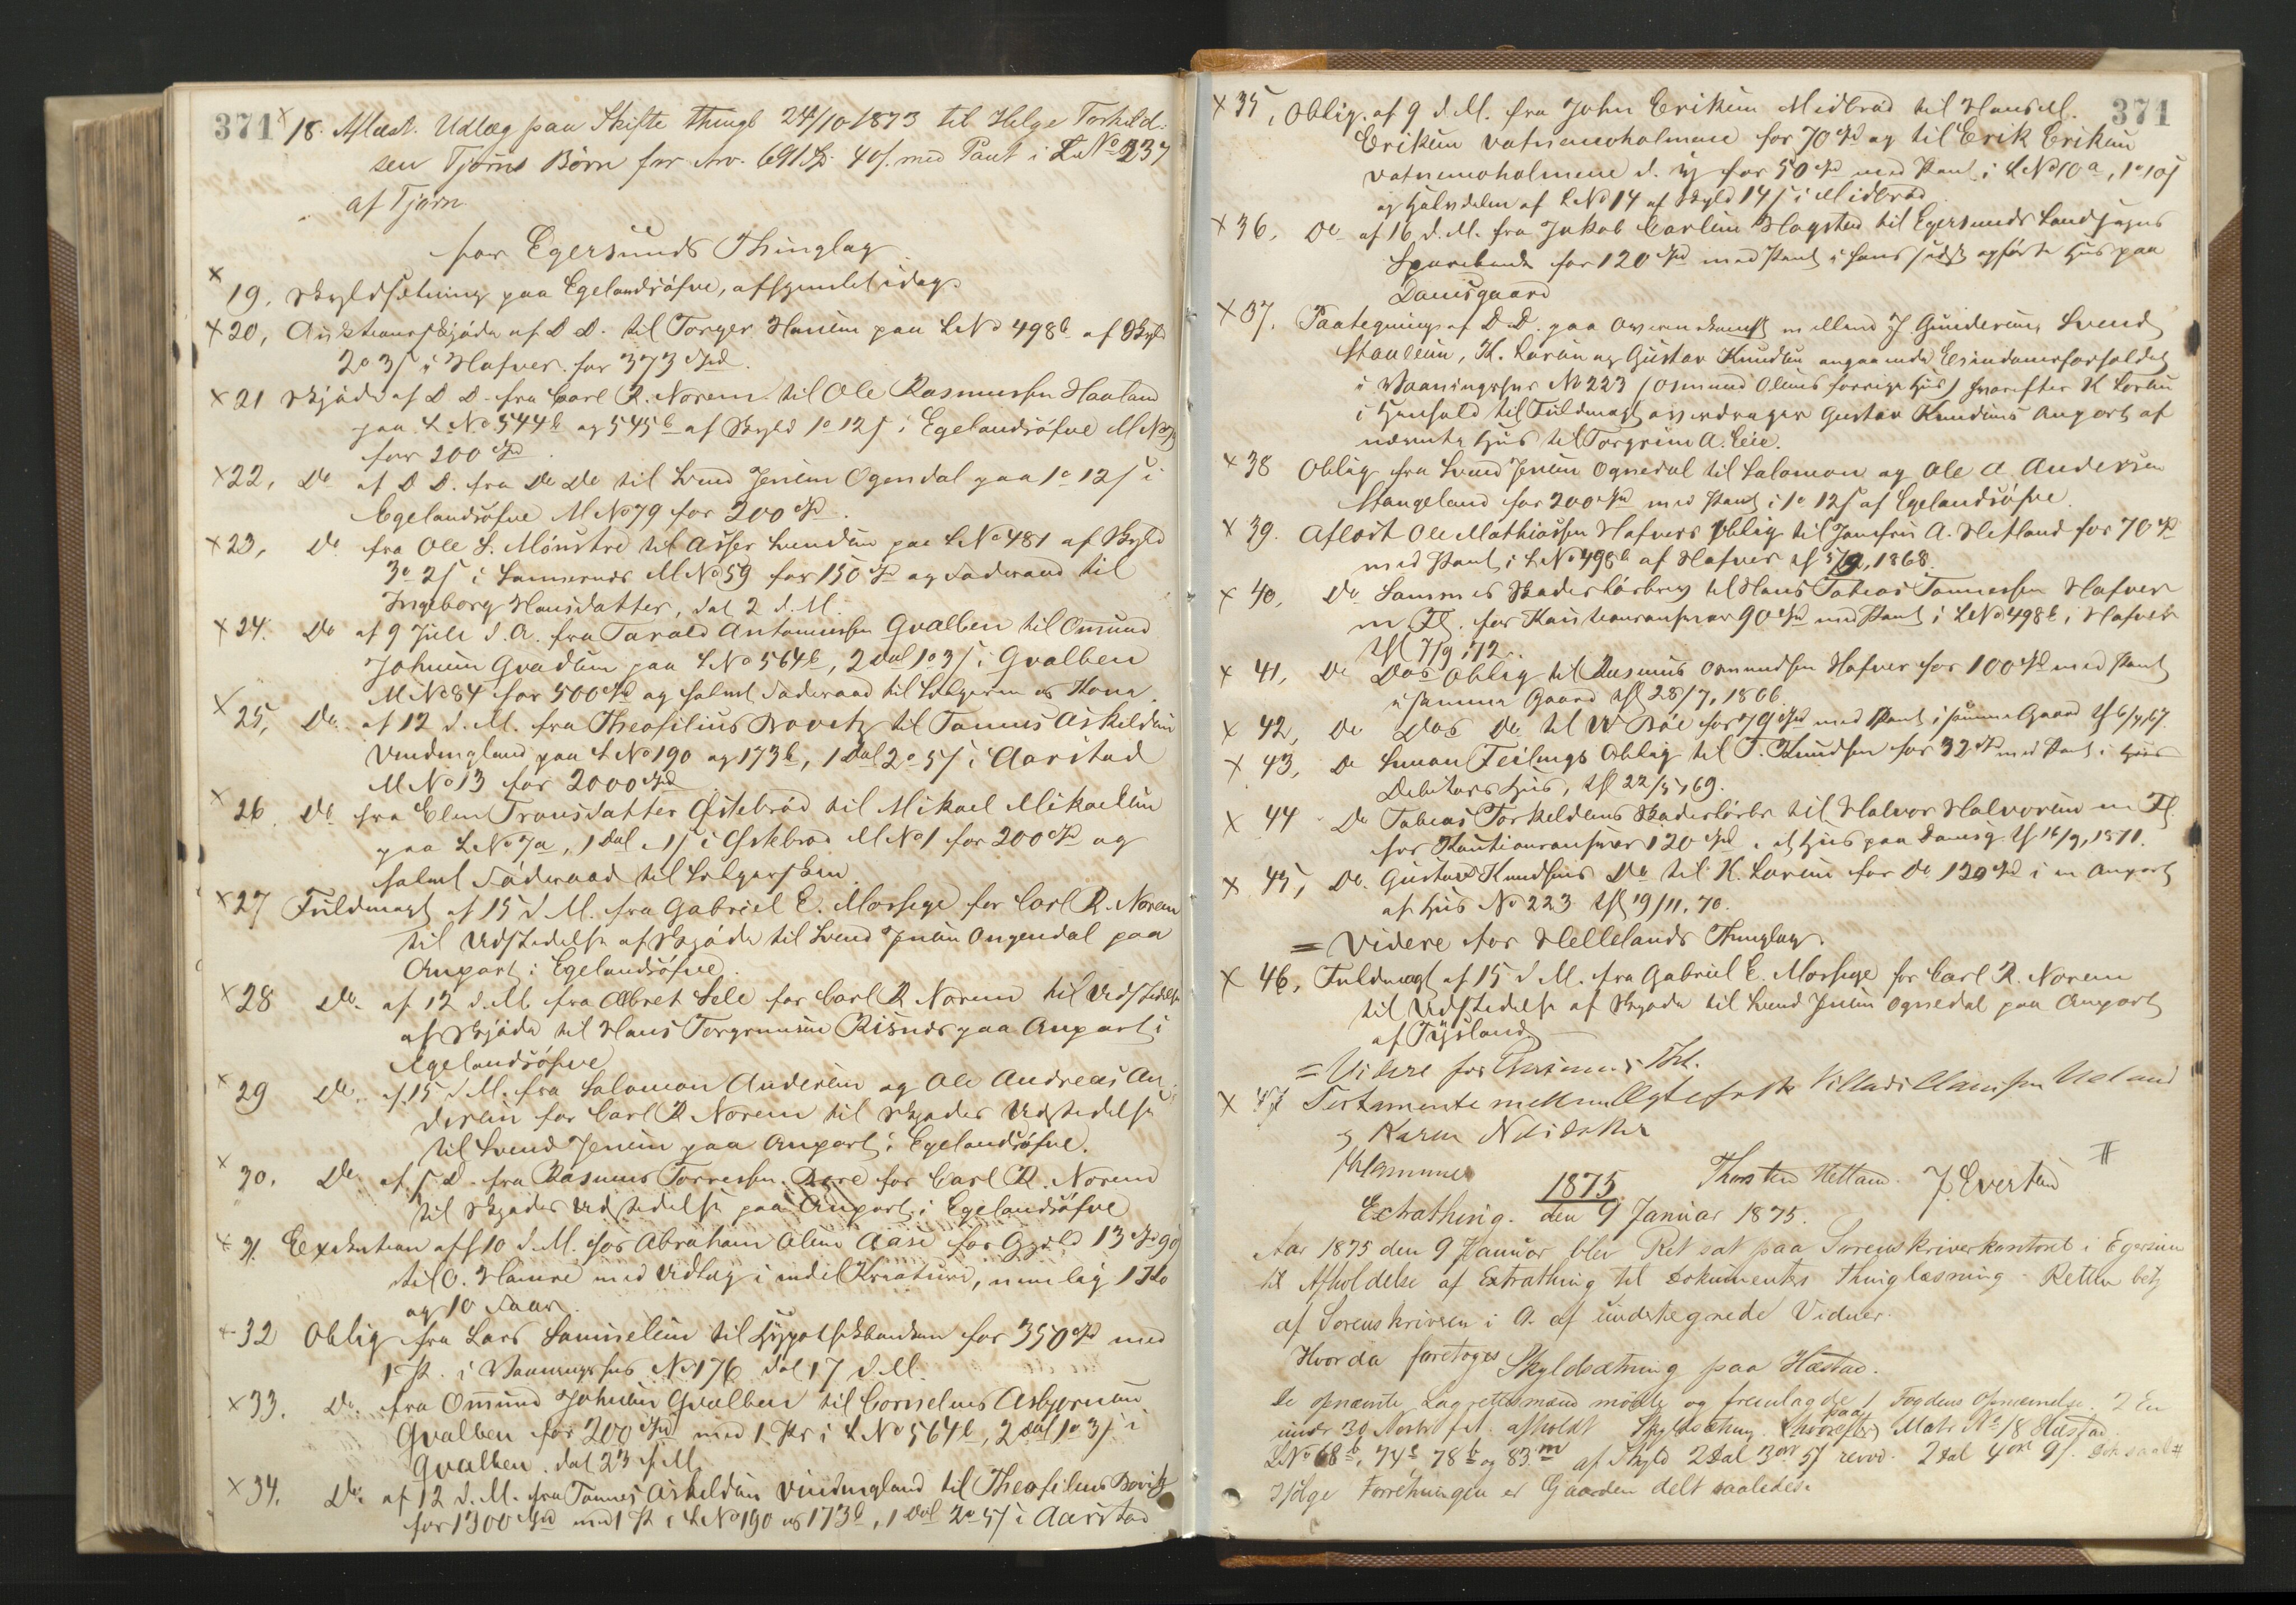 371
18. Aflæst. Udlæg paa Skifte thingl 24/10 1873 til Helge Torkild-
sen Tjørns Børn for Arv. 691 Sp. 40 s. med Pant i L. No 237
af Tjørn
for Egersunds Thinglag
x 19. Skyldsætning paa Egelandsøfve, afhjemlet idag
x 20, Auktionsskjøde af D. D. til Torger Hansen paa L No 498b af Skyld
2 o 3 s i Hafver for 373 Spd.
x 21 Skjøde af D. D. fra Carl R. Norem til Ole Rasmussen Haaland
paa L No 544b og 545b af Skyld 1 o 12 s i Egelandsøfve M No 79
for 200 Spd.
x 22, Do af D. D. fra Do Do til Svend Jensen Ogendal paa 1 o 12 s i
Egelandsøfve M No 79 for 200 Spd.
x 23, Do fra Ole S. Mønstre til Asser Svendsen paa L No 481 af Skyld
3 o 2 s i M No 59 for 150 Spd og Føderaad til
Ingeborg Hansdatter, dat 2 d. M.
x 24. Do af 9 Juli d. A. fra Tarald Antonsen Gvalben til Omund
Johnsen paa L No 564b, 2 Dal 1 o 3 s i Gvalben
M No 84 for 500 Spd og halvt Føderaad til Sælgeren og Kone.
x 25, Do af 12 d. M. fra Theofilius Bovitz til Tønnes Askildsen
Vindingland paa L No 190 og 173b, 1 Dal 2 o 5 s i Aarstad
M No 13 for 2000 Spd
x 26. Do fra Elen Tronsdatter Østebrød til Mikael Mikaelsen
paa L No 7a, 1 Dal 1 s i Østebrød M No 1 for 200 Spd og
halvt Føderaad til Sælgersken.
x 27 Fuldmagt af 15 d. M. fra Gabriel E. Mossige for Carl R. Norem
til Udstedelse af Skjøde til Svend Jensen Ongendal paa
Anpart i Egelandsøfve.
x 28 Do. af 12 d. M. fra Albret Sele for Carl R Norem til Udstedelse
af Skjøde til Hans Torgrimsen Risnes paa Anpart i
Egelandsøfve
x 29 Do. af 15 d. M. fra Salomon Andersen og Ole Andreas An-
dersen for Carl R Norem til Skjødes Udstedelse
til Svend Jensen paa Anpart i Egelandsøfve.
x 30. Do. af s. D. fra Rasmus Torressen for Carl R. Norem
til Skjødes Udstedelse paa Anpart i Egelandsøfve
x 31. Exekution af 10 d. M. hos Abraham Olsen Aase for Gjæld 13 Spd
til O. Hamre med Udlæg i endel Kreature, nemlig 1 Ko
og 10 Faar.
x 32 Oblig fra Lars Samuelsen til Hypothekbanken for 350 Spd med
1 Pt. i Vaaningshus No 176 dat 17 d. M.
x 33. Do. fra Omund Johnsen Gvalben til Cornelius Asbjørnsen
Gvalben for 200 Spd med 1 Pr i L No 564b, 2 Dal 1 o 3 s i
Gvalben. dat 23 f. M.
x 34. Do. af 12 d. M. fra Tønnes Askildsen Vindingland til Theofilius Bovitz
for 1300 Spd med 1 Pt i L No 190 og 173b, 1 Dal 2 o 5 s i Aarstad
371
x 35, Oblig. af 9 d. M. fra John Eriksen Midbrød til Hans M.
Eriksen Vatnemoholmene for 70 Spd og til Erik Eriksen
Vatnemoholmene d. y for 50 Spd med Pant i L No 10a, 1 o 10 s
og Halvdelen af L No 14 af Skyld 14 s i Midbrød
x 36, Do af 16 d. M. fra Jakob Carlsen Hogstad til Egersunds Landsogns
Sparebank for 120 Spd med Pant i hans sidst opførte Hus paa
Damsgaard
x 37. Paategning af D. D. paa Overenskomst mellem J Gundersen, Svend
Stauleen, K. Larsen og Gustav Knudsen angaaende Eiendomsforholdet
i Vaaningshus No 223 (Osmund Olsens forrige Hus) hvorefter K Larsen
i Henhold til Fuldmagt overdrager Gustav Knudsens Anpart af
nævnte Hus til Torgrim A. Eeie.
x 38 Oblig fra Svend Jensen Ognedal til Salomon og Ole A. Andersen
Stangeland for 200 Spd med Pant i 1 o 12 s af Egelandsøfve
x 39. Aflæst Ole Mathiassen Hafvers Oblig til Jomfru A. Hetland for 70 Spd
med Pant i L No 498b af Hafver af 5/9, 1868.
x 40, Do Sammes Skadesløsbrev til Hans Tobias Tønnessen Hafver
m. Fl. for Kautionsansvar 90 Spd med Pant i L No 498b i Hafver
thl 7/9, 72.
x 41, Do Dos Oblig til Rasmus Osmundsen Hafver for 100 Spd med Pant
i samme Gaard thl 28/7, 1866
x 42, Do Dos Do til W Bøe for 79 Spd med Pant i samme Gaard thl 6/7, 67.
x 43, Do Simon Feilings Oblig til T. Knudsen for 32 Spd med Pant i
Debitors Hus, thl 22/5, 69.
x 44 Do Tobias Torkeldsens Skadesløsbr til Halvor Halvorsen m Fl.
for Kautionsansvar 120 Spd i et Hus paa Damsg. thl 16/9, 1871.
x 45, Do. Gustav Knudsens Do til K. Larsen for Do 120 Spd i en Anpart
af Hus No 223 thl 19/11, 70.
= Videre for Hellelands Thinglag.
x 46, Fuldmagt af 15 d. M. fra Gabriel E. Mossige for Carl R. Norem
til Udstedelse af Skjøde til Svend Jensen Ognedal paa Anpart
af Tysland
= Videre for Egersunds Thl.
x 47 Testamente mellem Ægtefolk Villads Clausen Ueland
og Karen
1875
Thorsten Hetland. J. Evertsen
#
Extrathing. den 9 Januar 1875.
Aar 1875 den 9 Januar blev Ret sat paa Sorenskriverkontoret i Egersun
til Afholdelse af Extrathing til Dokumenters Thinglæsning. Retten betj
af Sorenskriveren i O. af undertegnede Vidner.
Hvorda foretoges Skyldsætning paa Hæstad.
De opnævnte Lagrettesmænd mødte og fremlagde 1 Fogdens Opnævnelse. 2 En
under 30 f. A. afholdt Skyldsætning paa Matr No 18 Hæstad
L No 68b, 74c 78b og 83m af Skyld 2 Dal 3 ort 5 s revid. 2 Dal 4 ort 9 s.
Ifølge Forretningen er Gaarden delt saaledes: